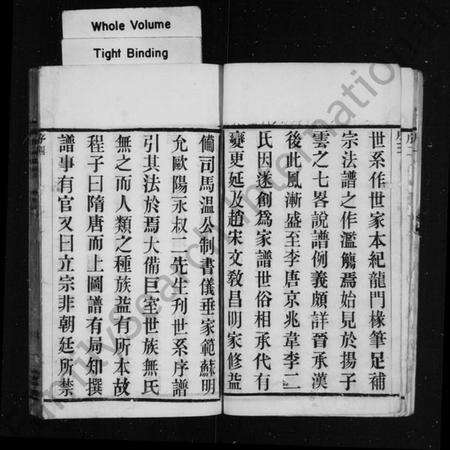 Whole Volume
Tight Binding
世系作世家本紀龍門椽筆足補
宗法譜之作濫觴焉始見於揚子
雲之七畧說譜例義頗詳晉承漢
後此風漸盛至李唐京兆韋李二
氏因遂創爲家譜世俗相承代有
變更延及趙宋文教昌明家修益
備司馬溫公制書儀垂家範蘇明
允歐陽永叔二先生刊世系序譜
引其法於焉大備巨室世族無氏
無之而人類之種族益有所本故
程子曰隋唐而上圖譜有局知撰
譜事有官又曰立宗非朝廷所禁
序四
familysearch international